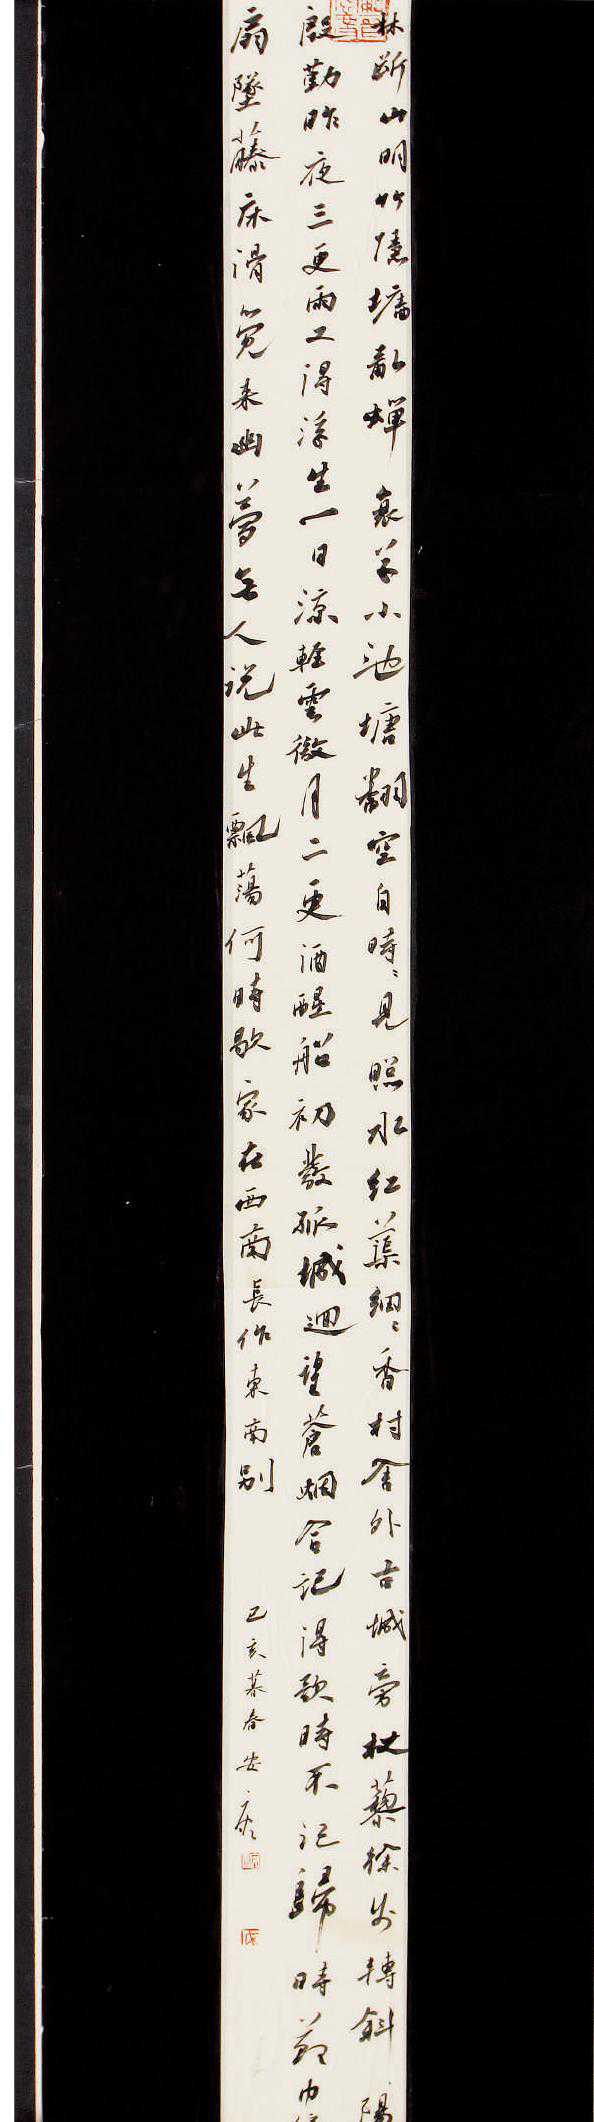 林断山明竹隱墻亂蟬衰草小池塘翻空白時々見照水紅蕖細々香村舍外古城旁杖藜徐步轉斜陽
殷勤昨夜三更雨又得浮生一日涼輕雲微月二更酒醒船初發孤城迴望蒼烟合記得歌時不記歸時節巾
扇墜藤床滑覺來幽夢無人說此生飄蕩何時歇家在西南長作東南別
己亥暮春安